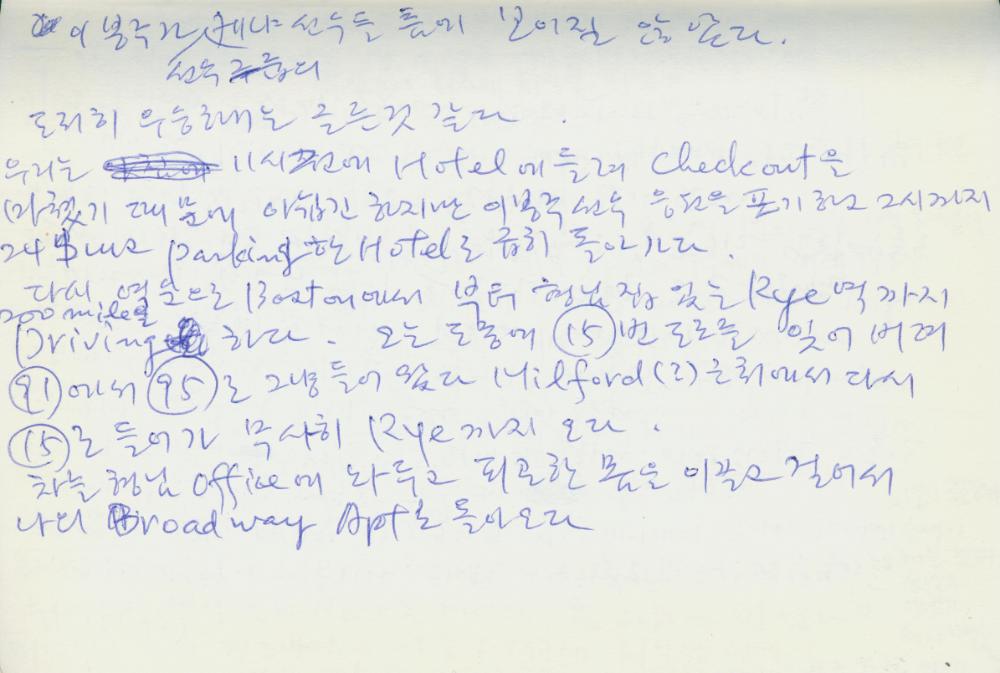 이봉주가 케냐 선수들 틈에 보이질 않는다.
선두 그룹의
도저히 우승하기는 글른것 같다.
우리는 11시전에 Hotel에 들려 Checkout을
마쳤기 때문에 아쉽긴 하지만 이봉주 선수 응원을 포기하고 2시까지
24 Bus parking한 Hotel로 급히 돌아가다.
다시 역순으로 Boston에서 부터 형님 집 있는 Rye역 까지
200mile을
Driving 하다. 오는 도중에 ⑮번 도로를 잊어 버려
(91)에서 (95)로 그냥 들어 왔다 Milford(?)근처에서 다시
⑮로 들어가 무사히 Rye까지 오다.
차를 형님 office에 놔두고 피곤한 몸을 이끌고 걸어서
나의 Broadway Apt로 돌아오다